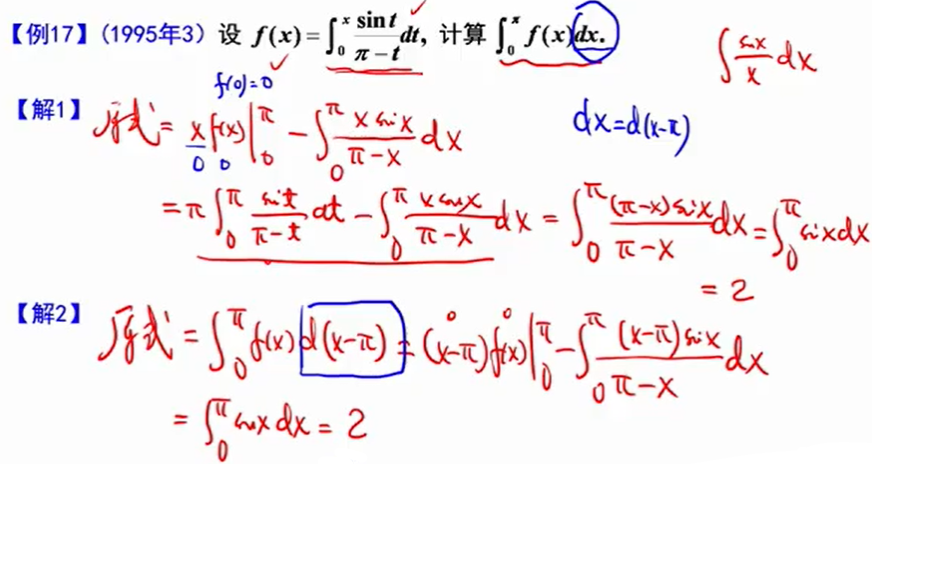 【例17】(1995年3) 设 f(x)=∫₀ˣ sin t/(π−t) dt, 计算 ∫₀^π f(x)dx.
∫ sin x/x dx
f(0)=0
【解1】 原式 = x f(x)|₀^π − ∫₀^π x sin x/(π−x) dx
0 0
dx=d(x-π)
= π∫₀^π sin t/(π−t) dt − ∫₀^π x sin x/(π−x) dx = ∫₀^π (π−x) sin x/(π−x) dx = ∫₀^π sin x dx
= 2
【解2】 原式 = ∫₀^π f(x) d(x−π) = (x−π) f(x)|₀^π − ∫₀^π (x−π) sin x/(π−x) dx
0 0
= ∫₀^π sin x dx = 2